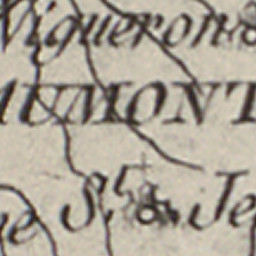 Vigueron
UMONT
St. Je